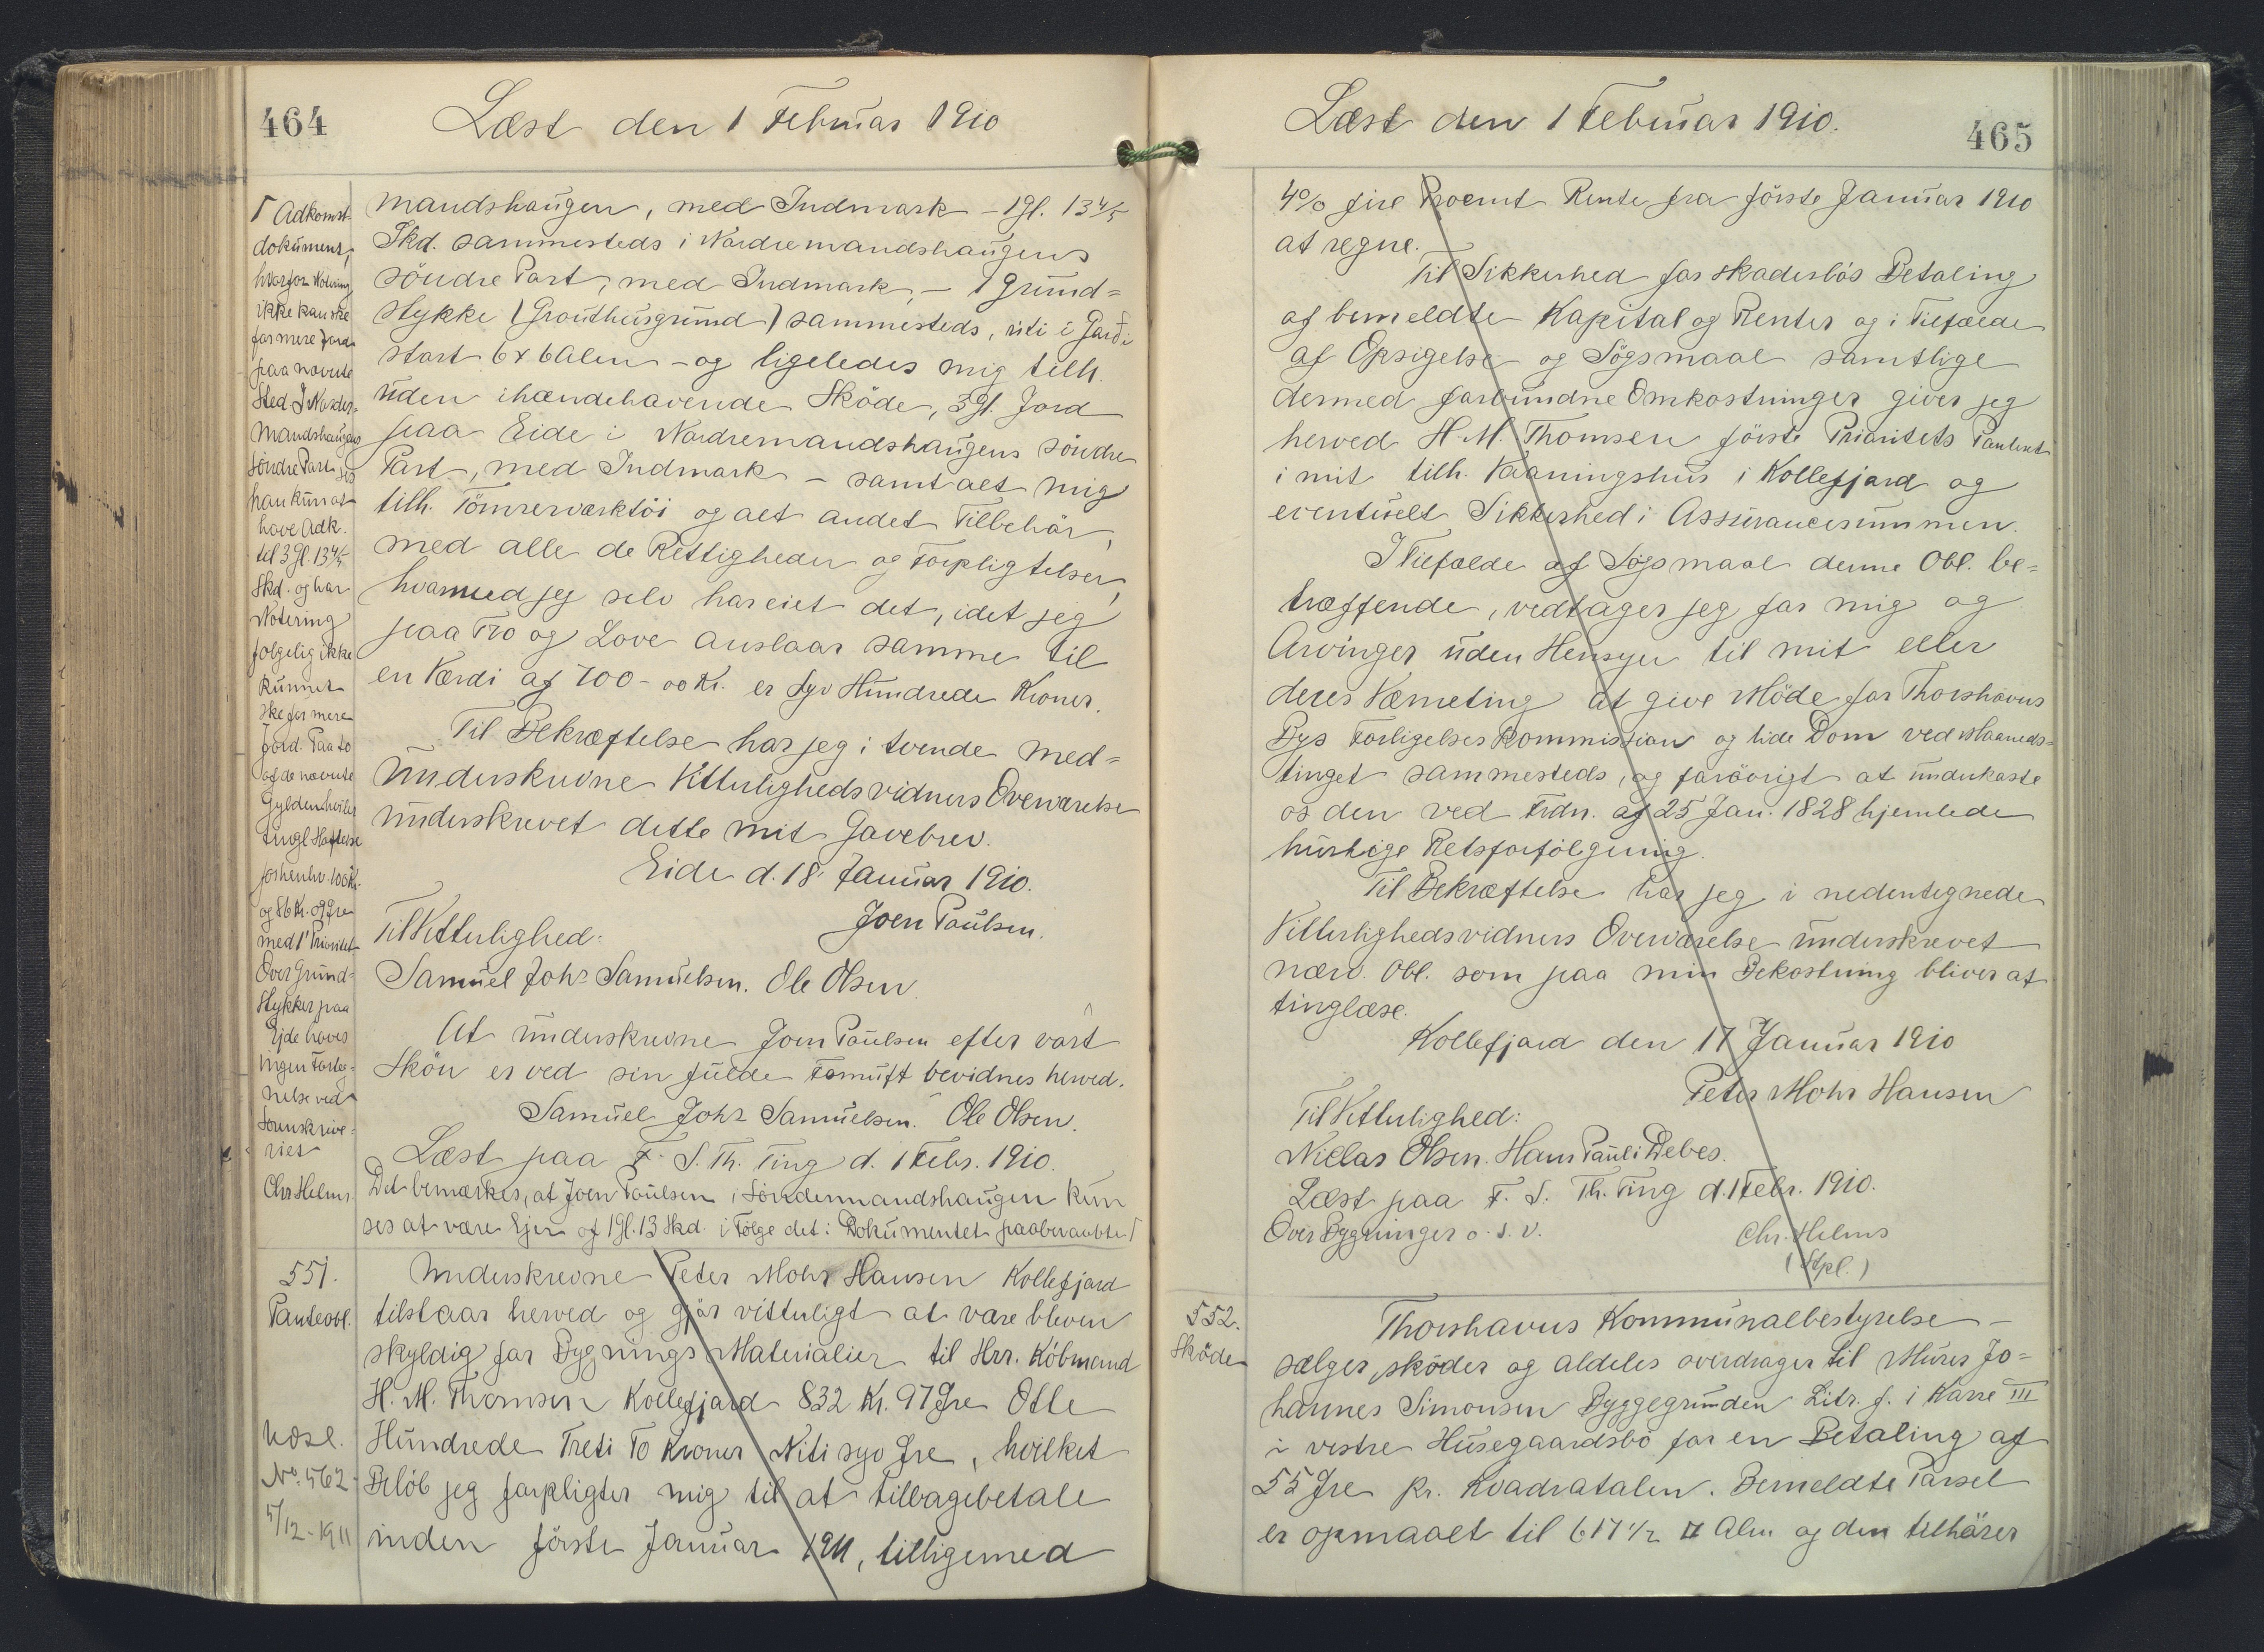 464
Læst den 1 Februar 1910
mandshaugen, med Indmark - 1 gl. 13 4/5
Skd. sammesteds i Nordremandshaugens
söndre Part, med Indmark, - 1 Grund=
stykke (Grouthusgrund) sammesteds, uti i Gardi
stort 6 x 6 Alen - og ligeledes mig tilh.
uden ihændehavende Sköde, 3 gl. Jord
paa Eide i Nordremandshaugens söndre
Part, med Indmark - samt alt mig
tilh. Tömrerværktöi og alt andet Tilbehör,
med alle de Rettigheder og Forpligtelser,
hvormed jeg selv har eiet det, idet jeg
paa Tro og Love anslaar samme til
en Værdi af 700 - 00 Kr. er Syv Hundrede Kroner.
Til Bekræftelse har jeg i tvende med=
underskrevne Vitterlighedsvidners Overværelse
underskrevet dette mit Gavebrev.
Eide d. 18 Januar 1910.
Joen Paulsen.
Til Vitterlighed:
Samuel Johs Samuelsen. Ole Olsen
At underskrevne Joen Paulsen efter vort
Skön er ved sin fulde Fornuft bevidnes herved.
Samuel Johs Samuelsen. Ole Olsen.
Læst paa F. S. Th. Ting d. 1 Febr. 1910.
Det bemærkes, at Joen Paulsen i Söndermandshaugen kun
ses at være Ejer af 1 gl. 13 Skd. i Følge det i Dokumentet paaberaabte Γ
Γ Adkomst-
dokument,
hvorfor Notering
ikke kan ske
for mere Jord
paa nævnte
Sted. I Norder=
mandshaugens
söndre Part ses
han kun at
have Adk.
til 3 gl. 13 4/5
Skd. og har
Notering
folgelig ikke
kunnet
ske for mere
Jord. Paa to
af de nævnte
Gylden hviler
tingl. Hæftelse
for henhv. 100 Kr.
og 86 Kr. 09 Øre
med 1' Prioritet
Over Grund=
stykker paa
Ejde haves
ingen Forteg=
nelse ved
Sorenskrive=
riet
Chr. Helms.
551.
Panteobl.
Underskrevne Peter Mohr Hansen Kollefjord
tilstaar herved og gjör vitterligt at være bleven
skyldig for Bygnings Materialier til Hrr. Köbmand
H. M. Thomsen Kollefjord 832 Kr. 97 Øre Otte
Hundrede Treti To Kroner Niti syv Øre, hvilket
Belöb jeg forpligter mig til at tilbagebetale
inden förste Januar 1911, tilligemed
No. 562
5/12 - 1911
465
Læst den 1 Februar 1910.
4% fire Procent Rente fra förste Januar 1910
at regne.
Til Sikkerhed for skadeslös Betaling
af bemeldte Kapital og Renter og i Tilfælde
af Opsigelse og Sögsmaal samtlige
dermed forbundne Omkostninger giver jeg
herved H. M. Thomsen förste Prioritets Panteret
i mit tilh. Vaaningshus i Kollefjord og
eventuelt Sikkerhed i Assurancesummen.
I Tilfælde af Sögsmaal denne Obl. be=
træffende, vedtager jeg for mig og
Arvinger uden Hensyn til mit eller
deres Værneting at give Möde for Thorshavns
Bys Forligelses Kommission og lide Dom ved Maaneds=
tinget sammesteds, og forövrigt at underkaste
os den ved Frdn. af 25 Jan. 1828 hjemlede
hurtige Retsforfölgning.
Til Bekræftelse har jeg i nedentegnede
Vitterlighedsvidners Overværelse underskrevet
nærv. Obl. som paa min Bekostning bliver at
tinglæse.
Kollefjord den 17 Januar 1910
Peter Mohr Hansen
Til Vitterlighed:
Niclas Olsen. Hans Pauli Debes.
Læst paa F. S. Th. Ting d. 1 Febr. 1910.
Over Bygninger o. s. v.
Chr. Helms
(Stpl.)
552.
Sköde
Thorshavns Kommunalbestyrelse -
sælger, sköder og aldeles overdrager til Murer Jo=
hannes Simonsen Byggegrunden Litr. f. i Karre III
i vestre Husegaardsbö for en Betaling af
55 Øre pr. Kvadratalen. Bemeldte Parsel
er opmaalt til 617 1/2 □ Alen og den tilhörer